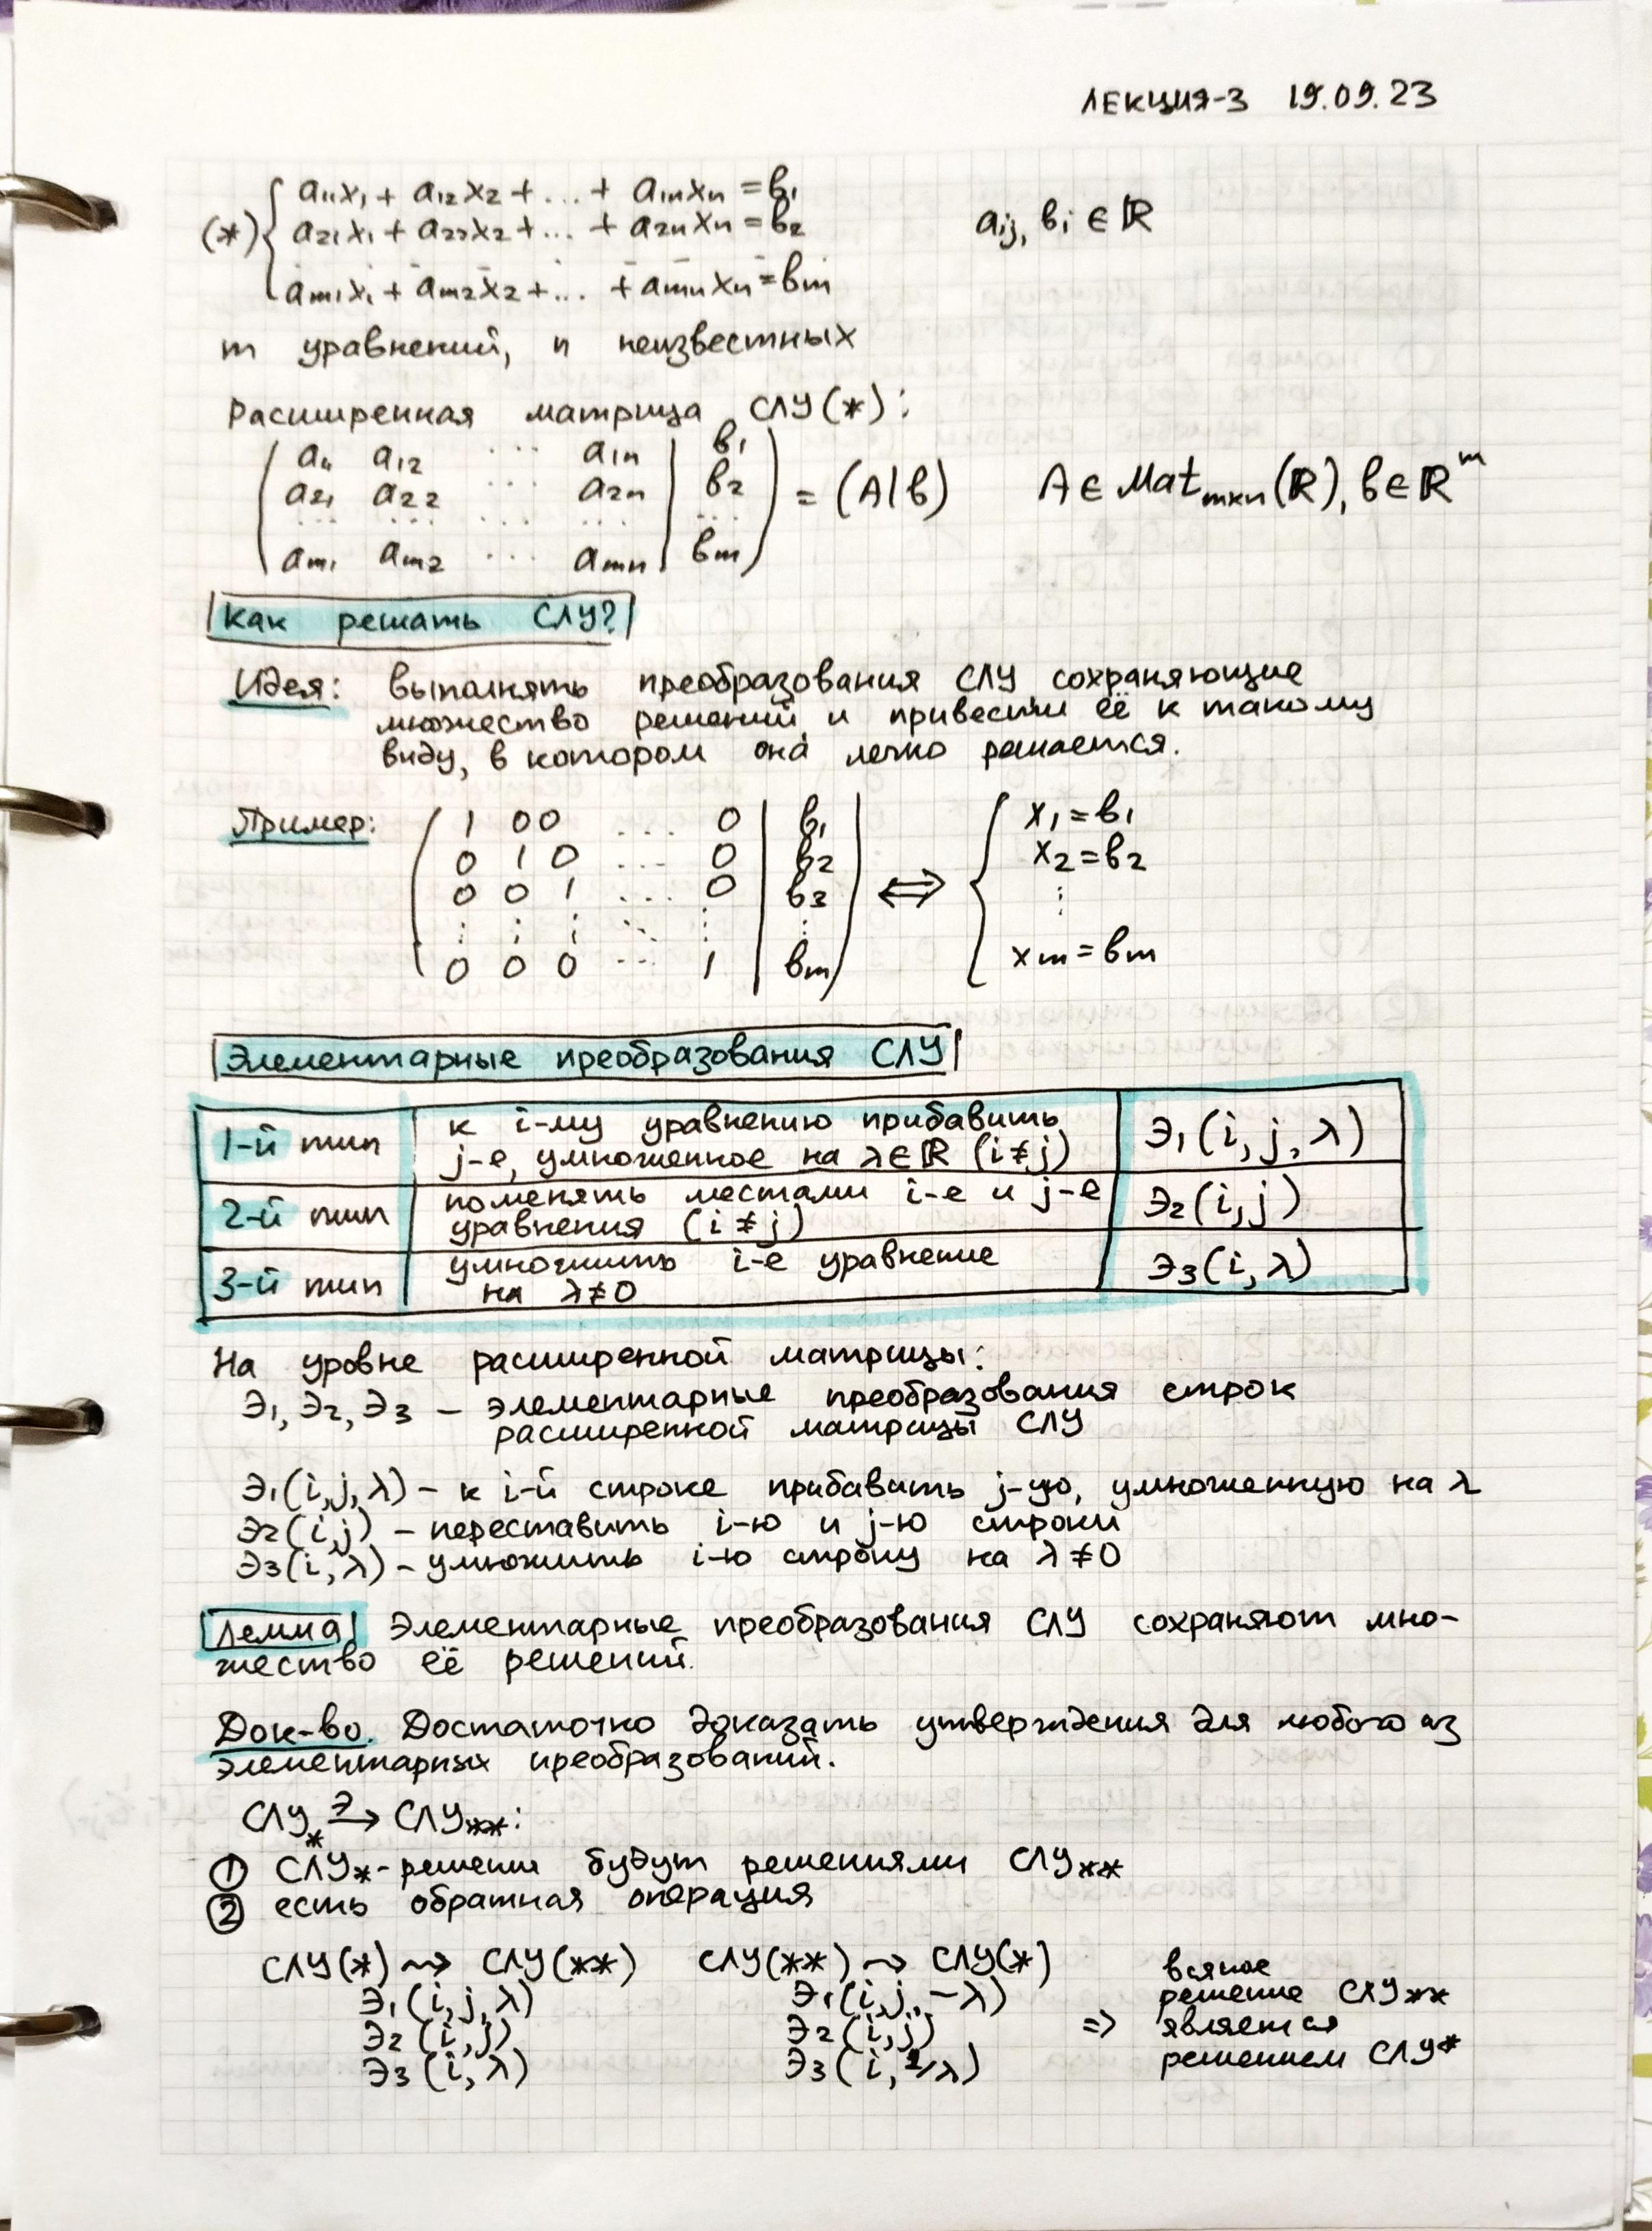 ЛЕКЦИЯ-3 19.09.23
(*) { a₁₁x₁ + a₁₂x₂ + ... + a₁ₙxₙ = b₁
a₂₁x₁ + a₂₂x₂ + ... + a₂ₙxₙ = b₂ aᵢⱼ, bᵢ ∈ ℝ
aₘ₁x₁ + aₘ₂x₂ + ... + aₘₙxₙ = bₘ
m уравнений, n неизвестных
Расширенная матрица СЛУ(*):
( a₁₁ a₁₂ ... a₁ₙ | b₁ )
( a₂₁ a₂₂ ... a₂ₙ | b₂ ) = (A|b) A ∈ Matₘₓₙ(ℝ), b ∈ ℝᵐ
( ... ... ... ... | ... )
( aₘ₁ aₘ₂ ... aₘₙ | bₘ )
Как решать СЛУ?
Идея: выполнять преобразования СЛУ сохраняющие
множество решений и привести её к такому
виду, в котором она легко решается.
Пример: ( 1 0 0 ... 0 | b₁ ) { x₁ = b₁
( 0 1 0 ... 0 | b₂ ) x₂ = b₂
( 0 0 1 ... 0 | b₃ ) ⇔ ⋮
( ⋮ ⋮ ⋮ ⋱ ⋮ | ⋮ )
( 0 0 0 ... 1 | bₘ ) xₘ = bₘ
Элементарные преобразования СЛУ
1-й тип к i-му уравнению прибавить Э₁(i, j, λ)
j-е, умноженное на λ ∈ ℝ (i ≠ j)
2-й тип поменять местами i-е и j-е Э₂(i, j)
уравнения (i ≠ j)
3-й тип умножить i-е уравнение Э₃(i, λ)
на λ ≠ 0
На уровне расширенной матрицы:
Э₁, Э₂, Э₃ – элементарные преобразования строк
расширенной матрицы СЛУ
Э₁(i, j, λ) – к i-й строке прибавить j-ую, умноженную на λ
Э₂(i, j) – переставить i-ю и j-ю строки
Э₃(i, λ) – умножить i-ю строку на λ ≠ 0
Лемма Элементарные преобразования СЛУ сохраняют мно-
жество её решений.
Док-во. Достаточно доказать утверждения для любого из
элементарных преобразований.
СЛУ* →Э СЛУ**:
① СЛУ*-решения будут решениями СЛУ**
② есть обратная операция
СЛУ(*) ⇝ СЛУ(**) СЛУ(**) ⇝ СЛУ(*) всякое
Э₁(i, j, λ) Э₁(i, j, -λ) решение СЛУ**
Э₂(i, j) Э₂(i, j) => является
Э₃(i, λ) Э₃(i, 1/λ) решением СЛУ*